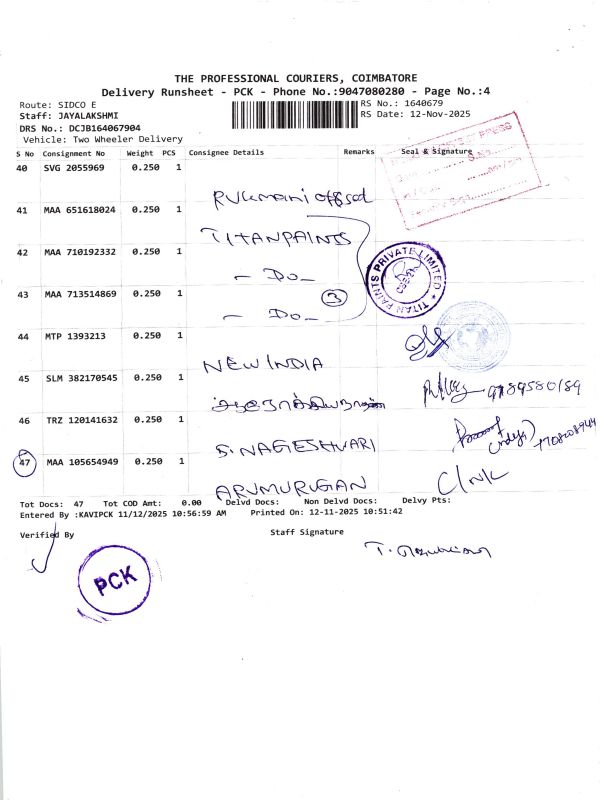 THE PROFESSIONAL COURIERS, COIMBATORE
Delivery Runsheet - PCK - Phone No.:9047080280 - Page No.:4
Route: SIDCO E
RS No.: 1640679
Staff: JAYALAKSHMI
RS Date: 12-Nov-2025
DRS No.: DCJB164067904
Vehicle: Two Wheeler Delivery
S No Consignment No Weight PCS Consignee Details Remarks Seal & Signature
40 SVG 2055969 0.250 1
Rukmani offset
41 MAA 651618024 0.250 1
TITAN PAINTS
42 MAA 710192332 0.250 1
- Do -
TITAN PAINTS PRIVATE LIMITED
43 MAA 713514869 0.250 1
3
- Do -
44 MTP 1393213 0.250 1
NEW INDIA
45 SLM 382170545 0.250 1
9789580189
46 TRZ 120141632 0.250 1
S. NAGESHWARI
47 MAA 105654949 0.250 1
ARUMURUGAN
C/NK
Tot Docs: 47 Tot COD Amt: 0.00 Delvd Docs: Non Delvd Docs: Delvy Pts:
Entered By :KAVIPCK 11/12/2025 10:56:59 AM Printed On: 12-11-2025 10:51:42
Verified By Staff Signature
PCK